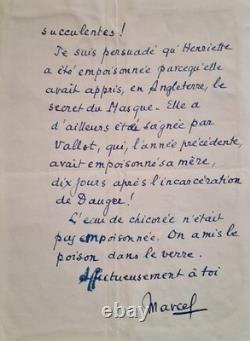 succulentes !
Je suis persuadé qu'Henriette
a été empoisonnée parcequ'elle
avait appris, en Angleterre, le
secret du Masque. Elle a
d'ailleurs été saignée par
Vallot, qui, l'année précédente,
avait empoisonné sa mère,
dix jours après l'incarcération
de Dauger !
L'eau de chicorée n'était
pas empoisonnée. On a mis le
poison dans le verre.
Affectueusement à toi
Marcel
ebay